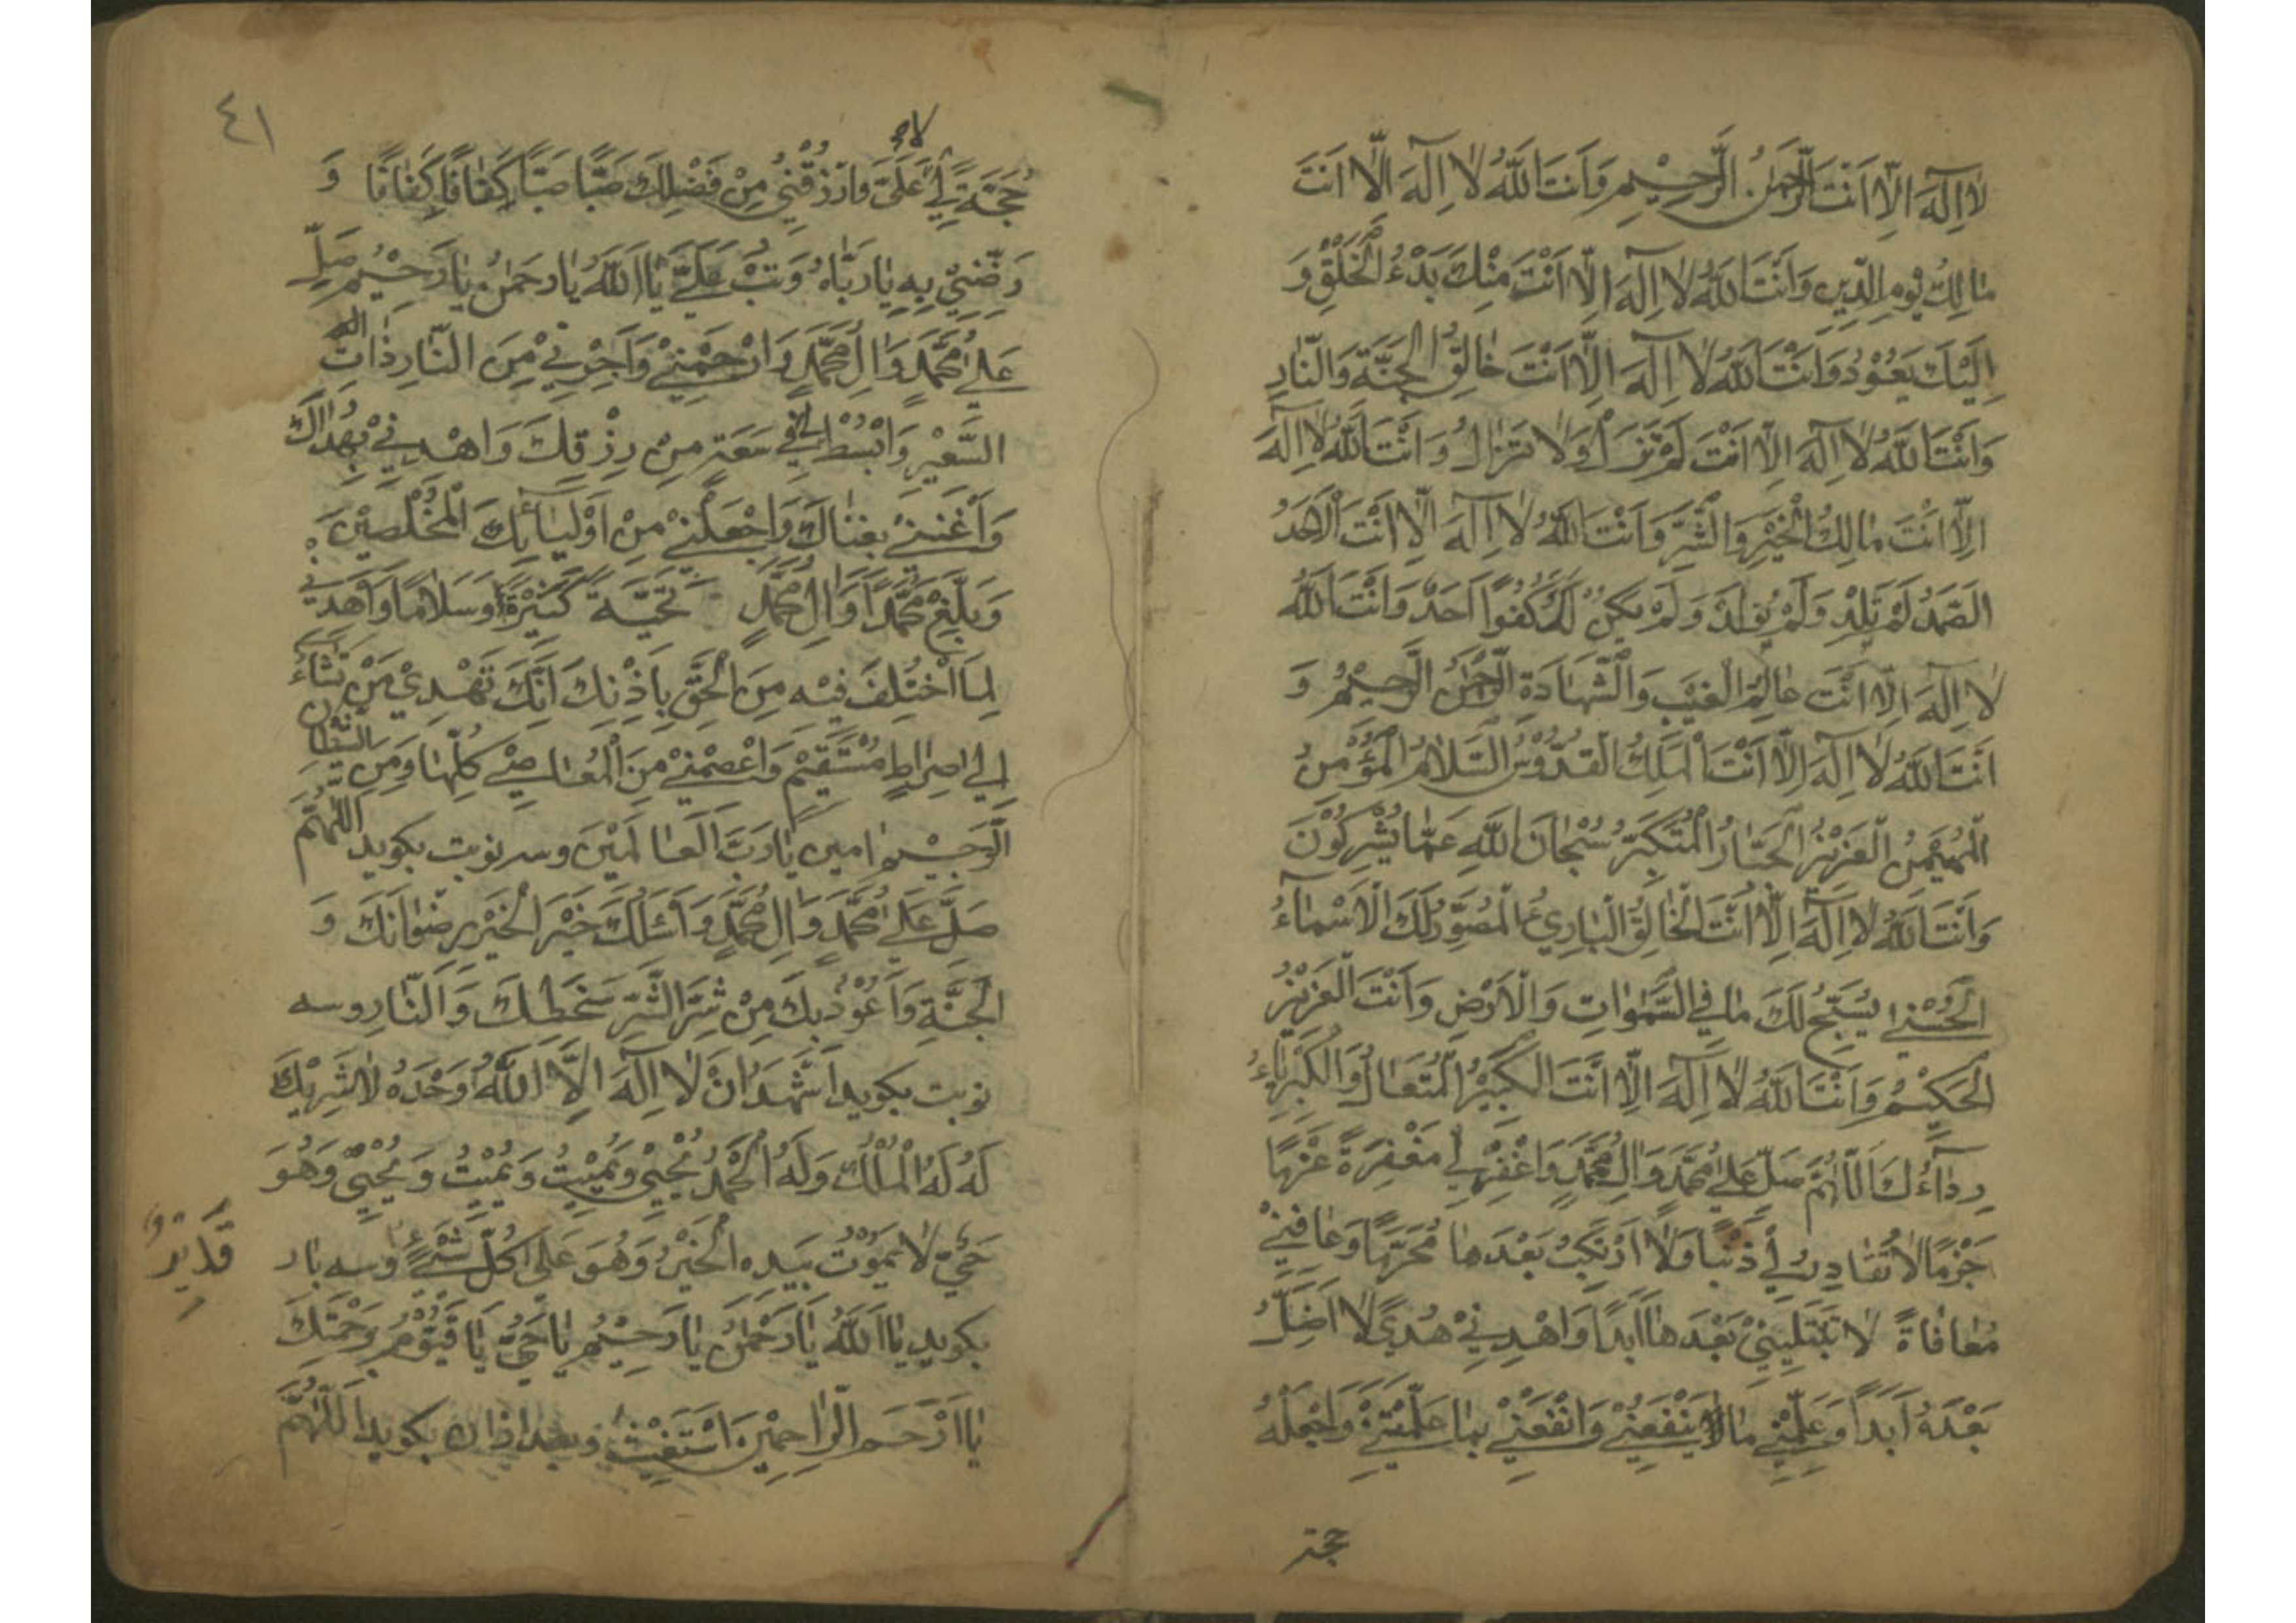 لَا اِلَهَ اِلَّا اَنْتَ الرَّحْمٰنُ الرَّحِيْمِ وَاَنْتَ اللّٰهُ لَا اِلَهَ اِلَّا اَنْتَ
مَالِكُ يَوْمِ الدِّيْنِ وَاَنْتَ اللّٰهُ لَا اِلَهَ اِلَّا اَنْتَ مِنْكَ بَدْءُ الْخَلْقِ وَ
اِلَيْكَ يَعُوْدُ وَاَنْتَ اللّٰهُ لَا اِلَهَ اِلَّا اَنْتَ خَالِقُ الْجَنَّةِ وَالنَّارِ
وَاَنْتَ اللّٰهُ لَا اِلَهَ اِلَّا اَنْتَ لَمْ تَزَلْ وَلَا تَزَالُ وَاَنْتَ اللّٰهُ لَا اِلَهَ
اِلَّا اَنْتَ مَالِكُ الْخَيْرِ وَالشَّرِّ وَاَنْتَ اللّٰهُ لَا اِلَهَ اِلَّا اَنْتَ الْاَحَدُ
الصَّمَدُ لَمْ تَلِدْ وَلَمْ يُوْلَدْ وَلَمْ يَكُنْ لَهُ كُفُوًا اَحَدٌ وَاَنْتَ اللّٰهُ
لَا اِلَهَ اِلَّا اَنْتَ عَالِمُ الْغَيْبِ وَالشَّهَادَةِ الرَّحْمٰنُ الرَّحِيْمُ وَ
اَنْتَ اللّٰهُ لَا اِلَهَ اِلَّا اَنْتَ الْمَلِكُ الْقُدُّوْسُ السَّلَامُ الْمُؤْمِنُ
الْمُهَيْمِنُ الْعَزِيْزُ الْجَبَّارُ الْمُتَكَبِّرُ سُبْحَانَ اللّٰهِ عَمَّا يُشْرِكُوْنَ
وَاَنْتَ اللّٰهُ لَا اِلَهَ اِلَّا اَنْتَ الْخَالِقُ الْبَارِئُ الْمُصَوِّرُ لَكَ الْاَسْمَاءُ
الْحُسْنٰى يُسَبِّحُ لَكَ مَا فِي السَّمٰوَاتِ وَالْاَرْضِ وَاَنْتَ الْعَزِيْزُ
الْحَكِيْمُ وَاَنْتَ اللّٰهُ لَا اِلَهَ اِلَّا اَنْتَ الْكَبِيْرُ الْمُتَعَالُ وَالْكِبْرِيَاءُ
رِدَاؤُكَ اَللّٰهُمَّ صَلِّ عَلٰى مُحَمَّدٍ وَاٰلِ مُحَمَّدٍ وَاغْفِرْ لِي مَغْفِرَةً عَزْمًا
جَزْمًا لَا تُغَادِرُ لِي ذَنْبًا وَلَا اَرْتَكِبُ بَعْدَهَا مُحَرَّمًا وَعَافِنِيْ
مُعَافَاةً لَا تَبْتَلِيْنِيْ بَعْدَهَا اَبَدًا وَاهْدِنِيْ هُدًى لَا اَضِلُّ
بَعْدَهُ اَبَدًا وَعَلِّمْنِي مَا يَنْفَعُنِيْ وَانْفَعْنِيْ بِمَا عَلَّمْتَنِيْ وَاجْعَلْهُ
حجة
٤١
حُجَّةً لِي لَا عَلَيَّ وَارْزُقْنِيْ مِنْ فَضْلِكَ صَبًّا صَبًّا كَفَافًا كَفَافًا وَ
رَضِّنِيْ بِهِ يَا رَبَّاهُ وَتُبْ عَلَيَّ يَا اَللّٰهُ يَا رَحْمٰنُ يَا رَحِيْمُ صَلِّ
عَلٰى مُحَمَّدٍ وَاٰلِ مُحَمَّدٍ وَارْحَمْنِيْ وَاَجِرْنِيْ مِنَ النَّارِ ذَاتِ
السَّعِيْرِ وَابْسُطْ لِي فِي سَعَةِ مِنْ رِزْقِكَ وَاهْدِنِيْ بِهُدَاكَ
وَاَغْنِنِيْ بِغِنَاكَ وَاجْعَلْنِيْ مِنْ اَوْلِيَائِكَ الْمُخْلَصِيْنَ
وَبَلِّغْ مُحَمَّدًا وَاٰلِ مُحَمَّدٍ تَحِيَّةً كَثِيْرَةً وَسَلَامًا وَاهْدِنِي
لِمَا اخْتُلِفَ فِيْهِ مِنَ الْحَقِّ بِاِذْنِكَ اِنَّكَ تَهْدِيْ مَنْ تَشَاءُ
اِلٰى صِرَاطٍ مُسْتَقِيْمٍ وَاعْصِمْنِيْ مِنَ الْمَعَاصِيْ كُلِّهَا وَمِنَ الشَّيْطَانِ
الرَّجِيْمِ اٰمِين يَا رَبَّ الْعَالَمِيْنَ وسه نوبت بكويد اللّٰهُمَّ
صَلِّ عَلٰى مُحَمَّدٍ وَاٰلِ مُحَمَّدٍ وَاَسْئَلُكَ خَيْرَ الْخَيْرِ رِضْوَانَكَ وَ
الْجَنَّةِ وَاَعُوْذُ بِكَ مِنْ شَرِّ الشَّرِّ سَخَطِكَ وَالنَّارِ وسه
نوبت بكويد اَشْهَدُ اَنْ لَا اِلَهَ اِلَّا اللّٰهُ وَحْدَهُ لَا شَرِيْكَ
لَهُ لَهُ الْمُلْكُ وَلَهُ الْحَمْدُ يُحْيِيْ وَيُمِيْتُ وَيُمِيْتُ وَيُحْيِيْ وَهُوَ
حَيٌّ لَا يَمُوْتُ بِيَدِهِ الْخَيْرُ وَهُوَ عَلٰى كُلِّ شَيْءٍ قَدِيْرٌ وسه بار
بكويد يَا اَللّٰهُ يَا رَحْمٰنُ يَا رَحِيْمُ يَا حَيُّ يَا قَيُّوْمُ بِرَحْمَتِكَ
يَا اَرْحَمَ الرَّاحِمِيْنَ اَسْتَغِيْثُ وبعد از ان بكويد اَللّٰهُمَّ